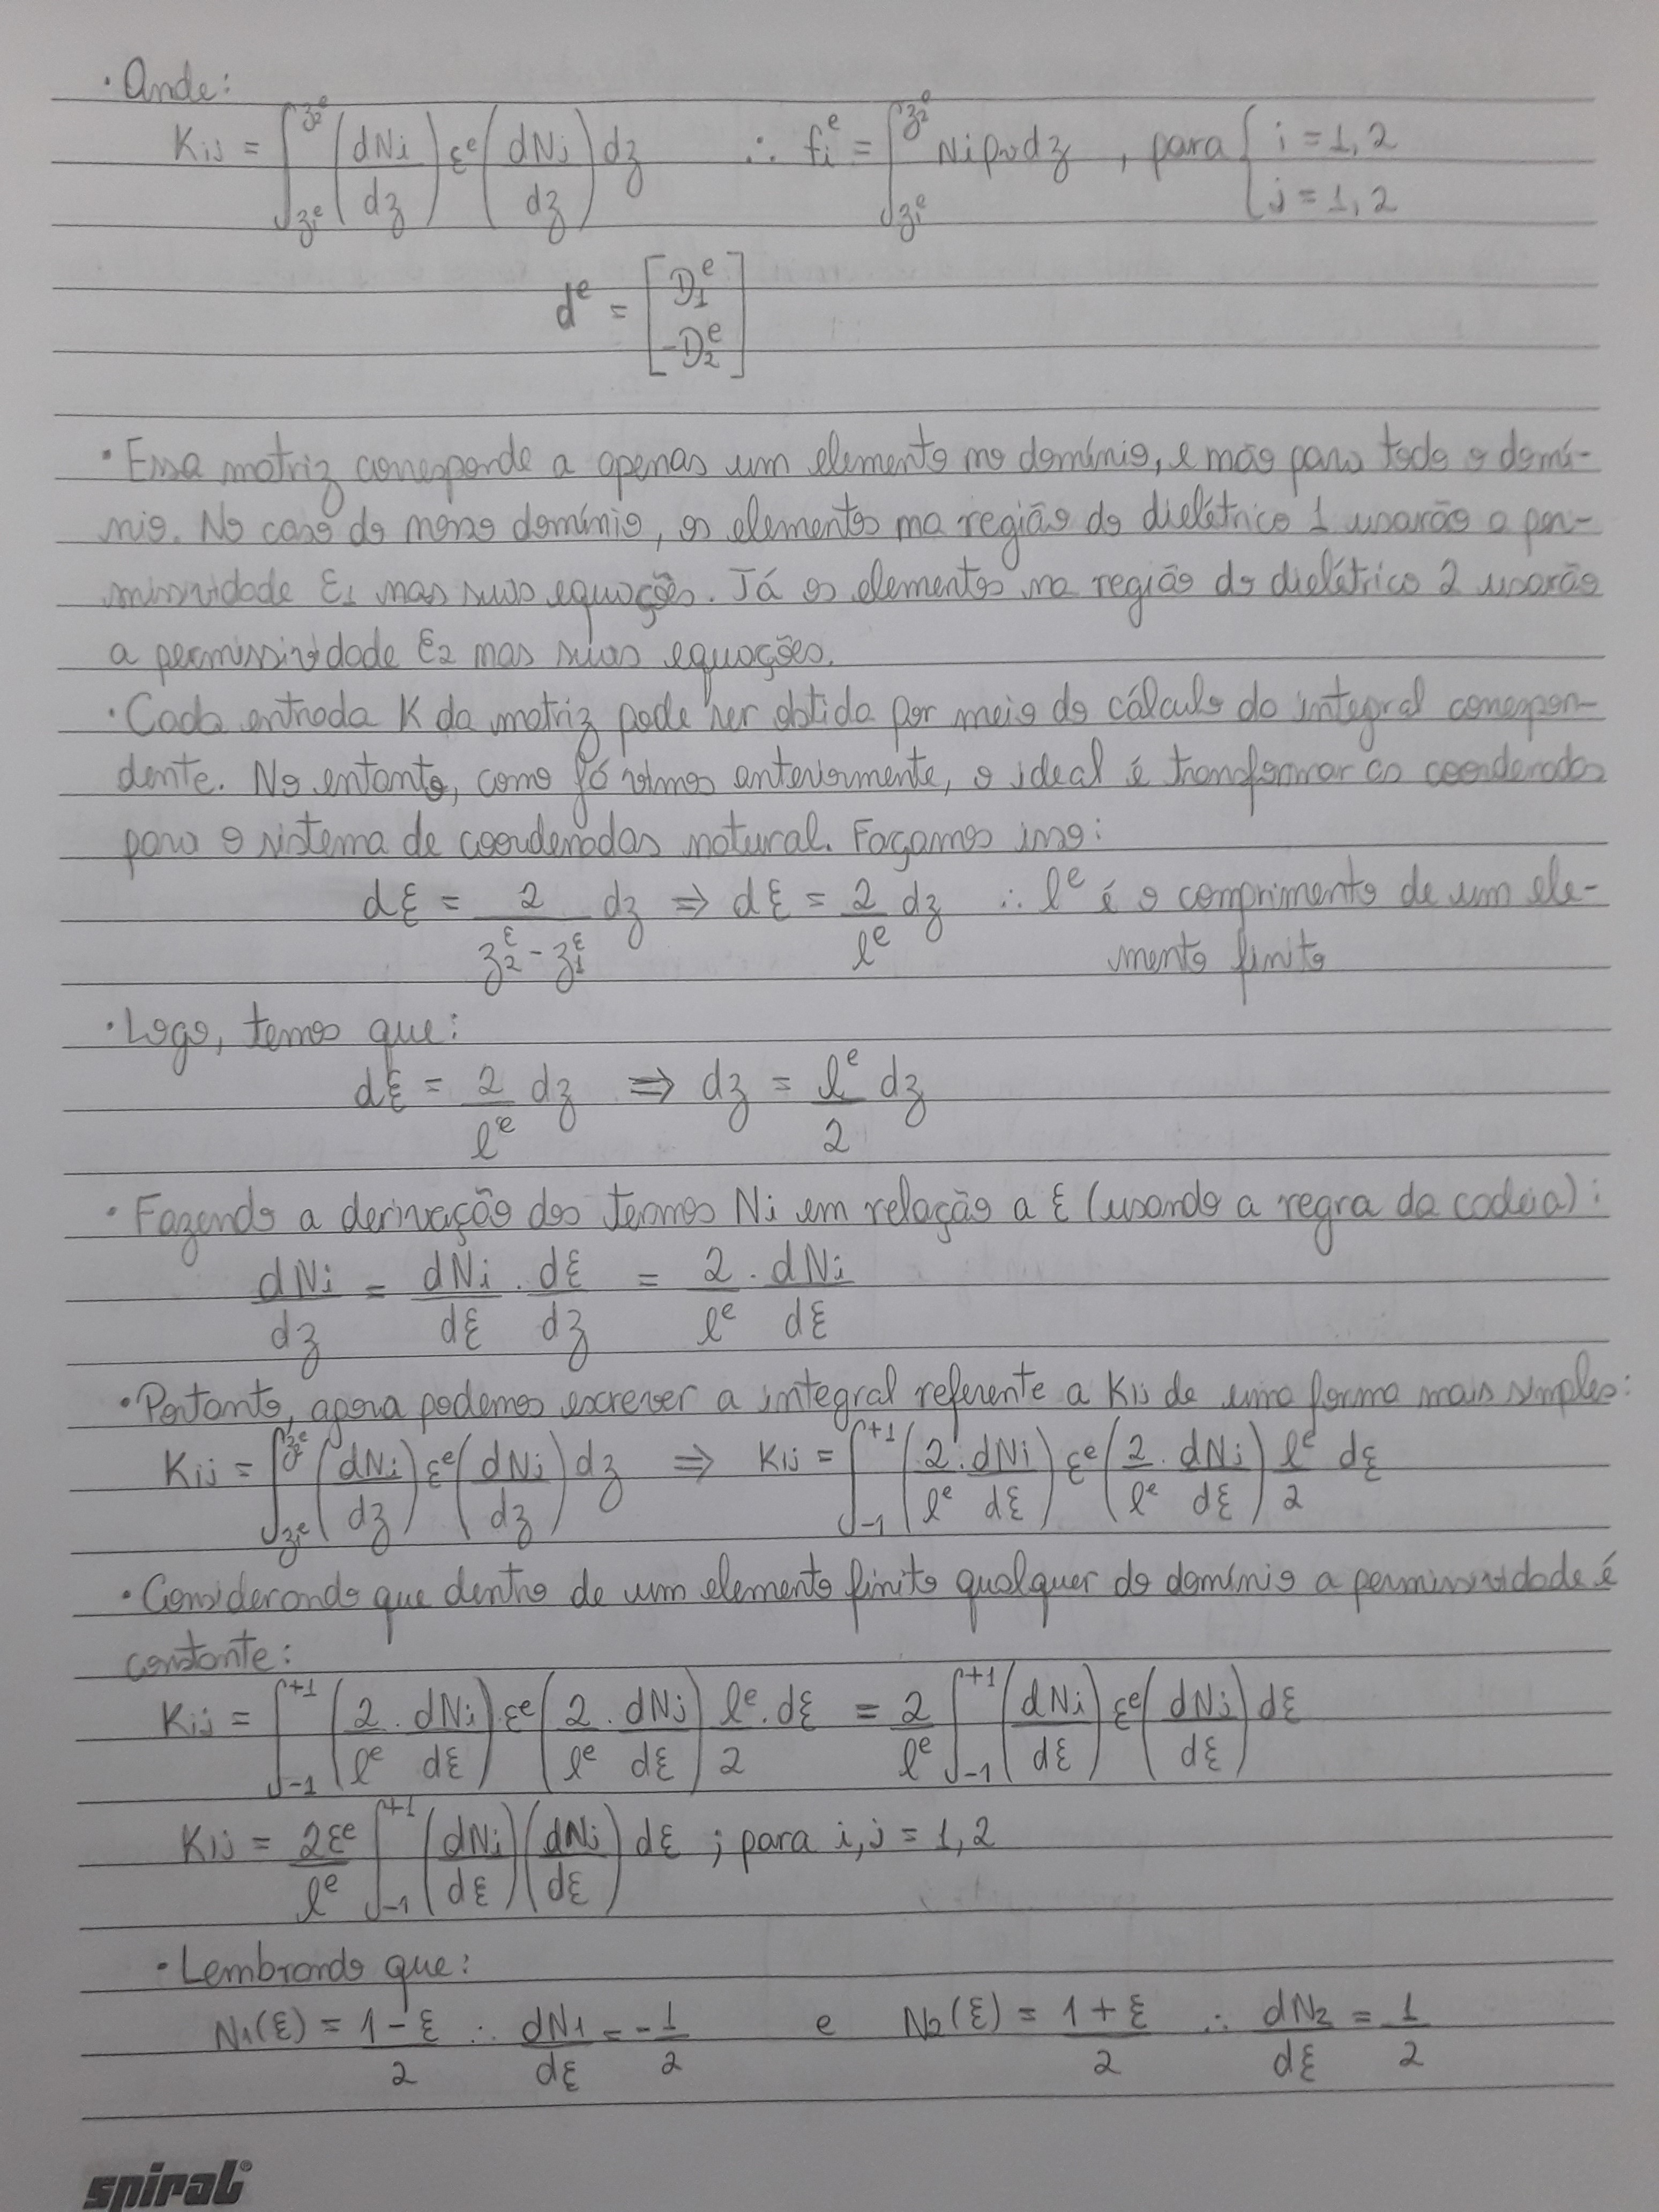 · Onde:
Kij = ∫_{z₁ᵉ}^{z₂ᵉ} (dNi/dz) εᵉ (dNj/dz) dz ∴ fiᵉ = ∫_{z₁ᵉ}^{z₂ᵉ} Ni ρv dz , para { i = 1, 2
j = 1, 2
dᵉ = [ D₁ᵉ
-D₂ᵉ ]
· Essa matriz corresponde a apenas um elemento no domínio, e não para todo o domí-
nio. No caso do nosso domínio, os elementos na região do dielétrico 1 usarão a per-
missividade ε₁ nas suas equações. Já os elementos na região do dielétrico 2 usarão
a permissividade ε₂ nas suas equações.
· Cada entrada K da matriz pode ser obtida por meio do cálculo da integral correspon-
dente. No entanto, como já vimos anteriormente, o ideal é transformar as coordenadas
para o sistema de coordenadas natural. Façamos isso:
dξ = 2/(z₂^ξ - z₁^ξ) dz ⇒ dξ = 2/lᵉ dz ∴ lᵉ é o comprimento de um ele-
mento finito
· Logo, temos que:
dξ = 2/lᵉ dz ⇒ dz = lᵉ/2 dz
· Fazendo a derivação dos termos Ni em relação a ξ (usando a regra da cadeia):
dNi/dz = dNi/dξ · dξ/dz = 2/lᵉ · dNi/dξ
· Portanto, agora podemos escrever a integral referente a Kij de uma forma mais simples:
Kij = ∫_{z₁ᵉ}^{z₂ᵉ} (dNi/dz) εᵉ (dNj/dz) dz ⇒ Kij = ∫_{-1}^{+1} (2/lᵉ · dNi/dξ) εᵉ (2/lᵉ · dNj/dξ) lᵉ/2 dξ
· Considerando que dentro de um elemento finito qualquer do domínio a permissividade é
constante:
Kij = ∫_{-1}^{+1} (2/lᵉ · dNi/dξ) · εᵉ (2/lᵉ · dNj/dξ) lᵉ/2 · dξ = 2/lᵉ ∫_{-1}^{+1} (dNi/dξ) εᵉ (dNj/dξ) dξ
Kij = 2εᵉ/lᵉ ∫_{-1}^{+1} (dNi/dξ) (dNj/dξ) dξ ; para i, j = 1, 2
· Lembrando que:
N1(ξ) = (1 - ξ)/2 ∴ dN1/dξ = -1/2 e N2(ξ) = (1 + ξ)/2 ∴ dN2/dξ = 1/2
spiral®